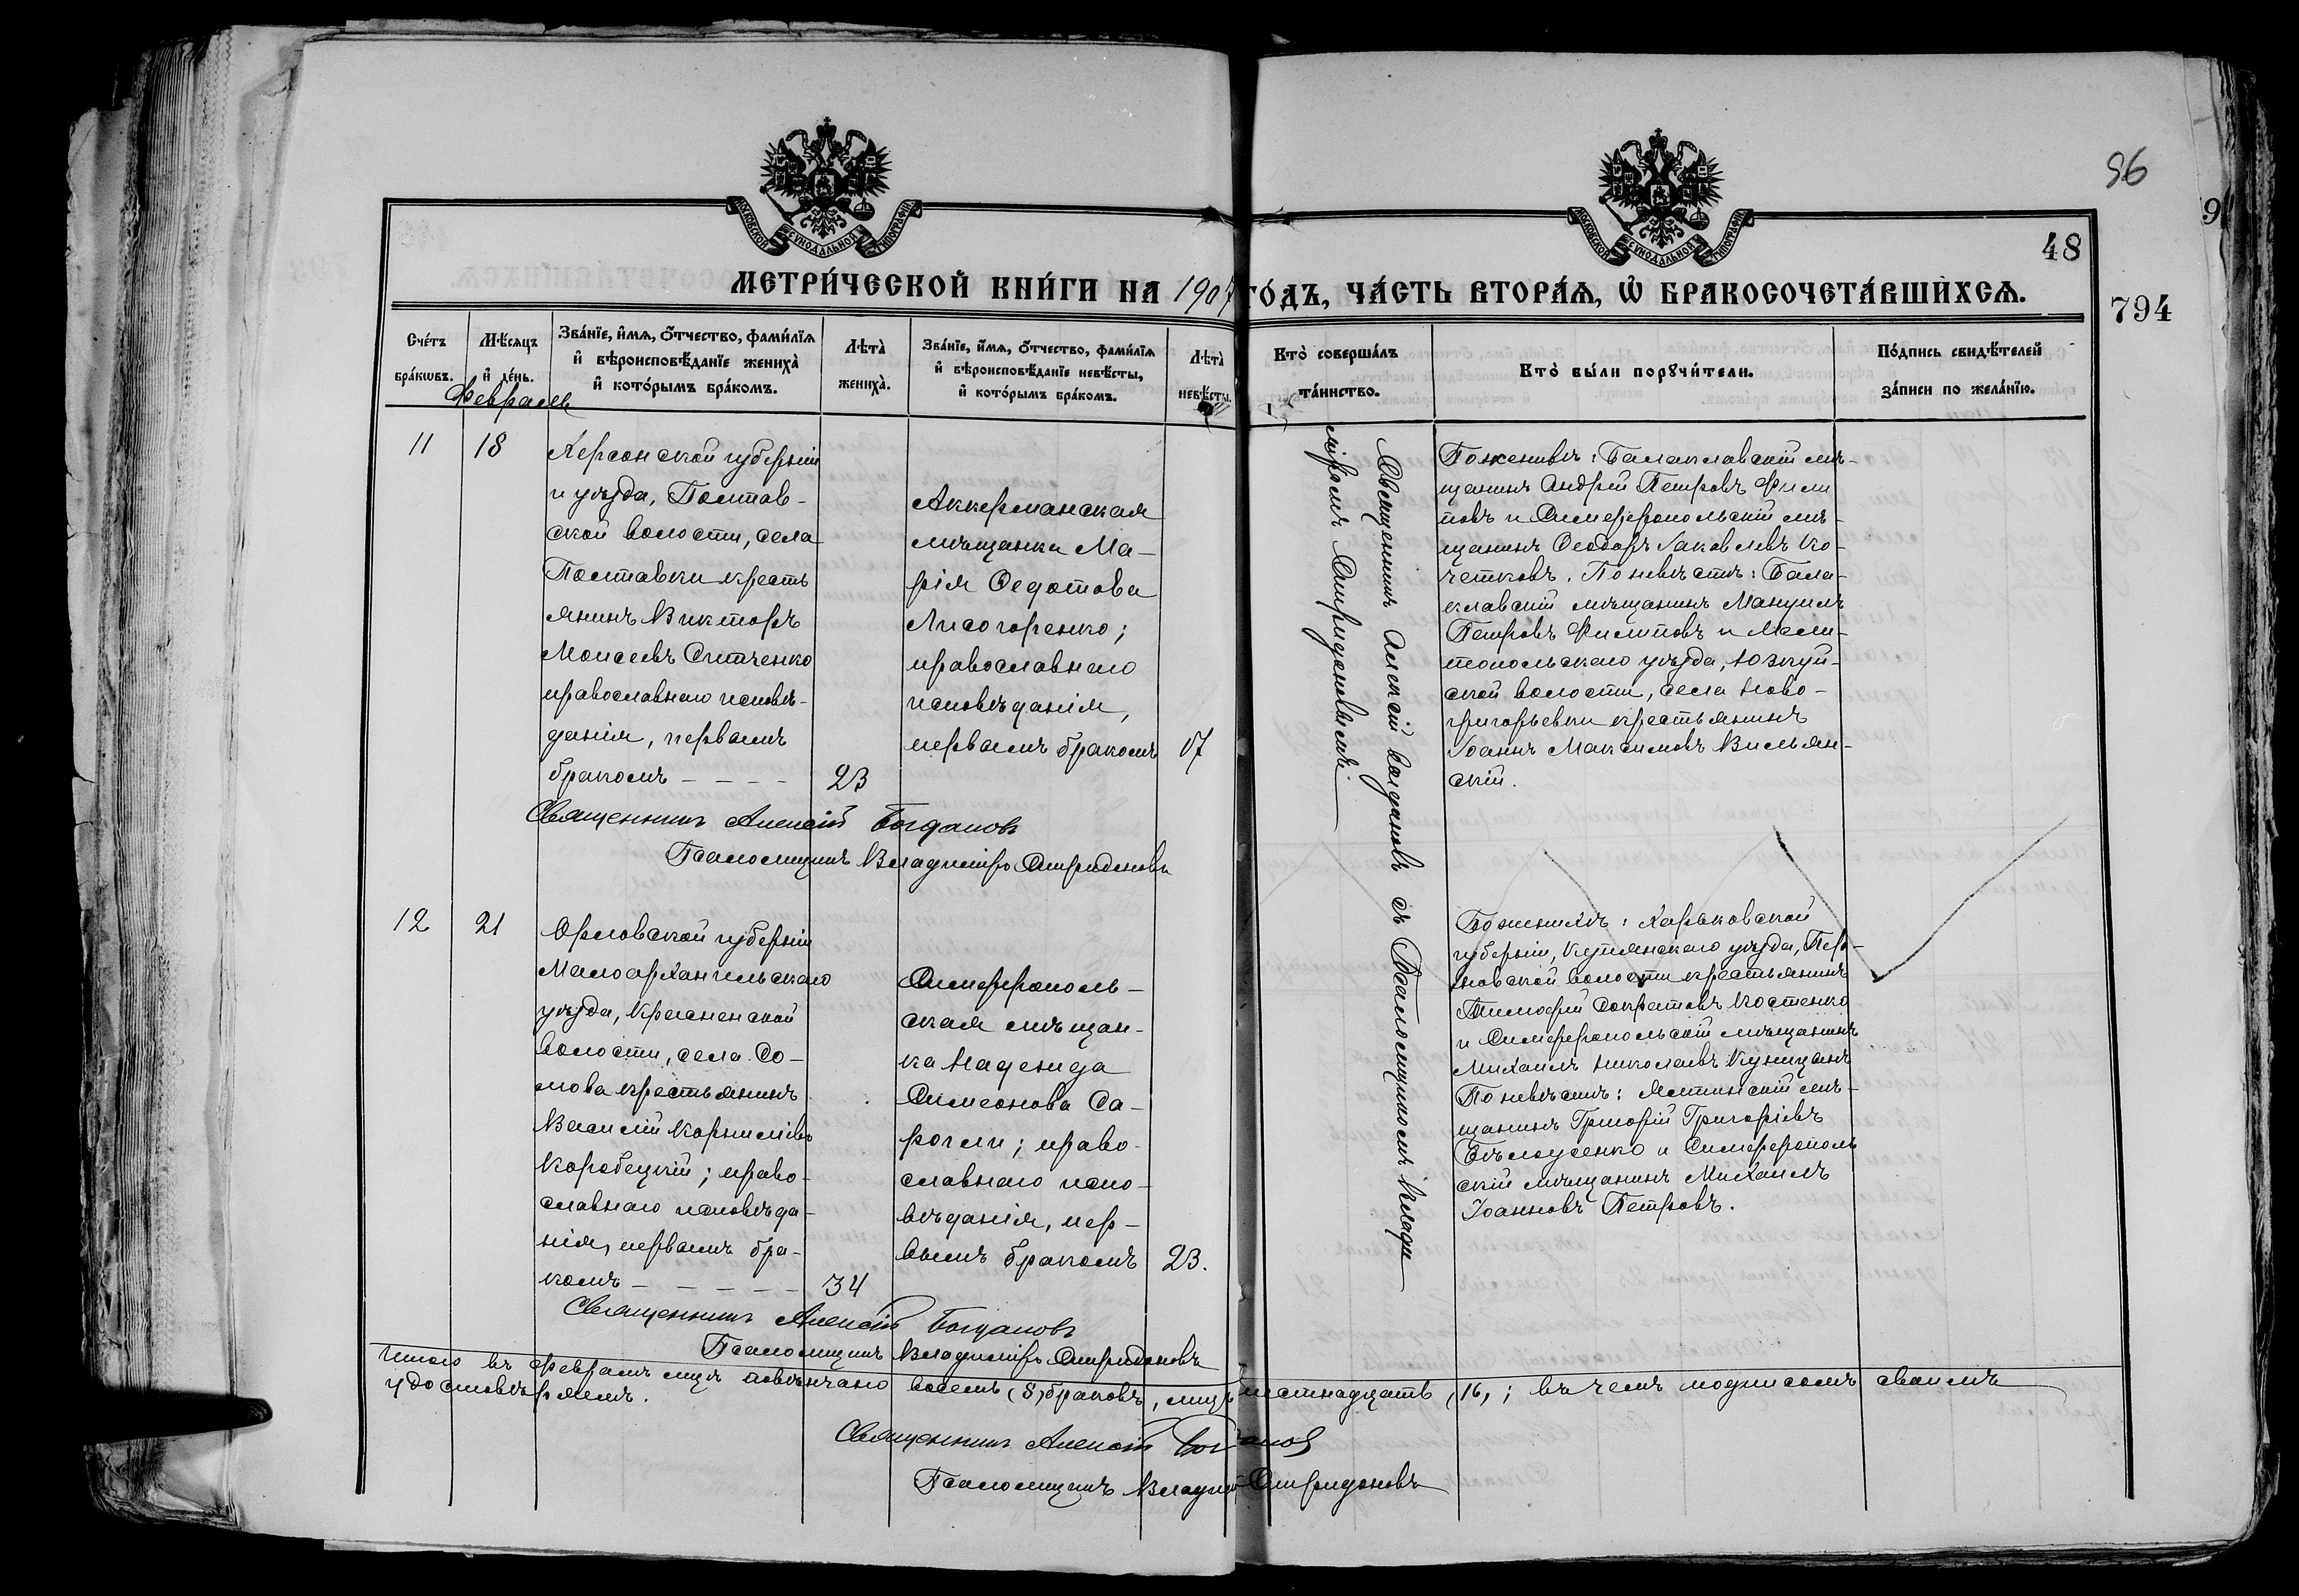 96
48
794
МОСКОВСКОЙ СѴНОДАЛЬНОЙ ТИПОГРАФІИ
МОСКОВСКОЙ СѴНОДАЛЬНОЙ ТИПОГРАФІИ
МЕТРИ́ЧЕСКОЙ КНИ́ГИ НА 1907 ГО́ДЪ, ЧА́СТЬ ВТОРА́Ѧ, Ѡ҆ БРАКОСОЧЕТА́ВШИХСѦ.
Сче́тъ бра́кѡвъ.
Мѣ́сѧцъ и҆ де́нь.
Зва́нїе, и҆́мѧ, ѻ҆́тчество, фами́лїѧ и҆ вѣроисповѣ́данїе жениха̀ и҆ кото́рымъ бра́комъ.
Лѣта̀ жениха̀.
Зва́нїе, и҆́мѧ, ѻ҆́тчество, фами́лїѧ и҆ вѣроисповѣ́данїе невѣ́сты, и҆ кото́рымъ бра́комъ.
Лѣта̀ невѣ́сты.
Кто̀ соверша́лъ та́инство.
Кто̀ бы́ли порꙋчи́тели.
По́дпись свидѣ́телей за́писи по жела́нїю.
Февраль
11
18
Херсонской губерніи
и уѣзда, Полтав-
ской волости, села
Полтавки кресть
янинъ Викторъ
Моисеевъ Ситченко
православнаго исповѣ-
данія, первымъ
бракомъ - - - -
23
Аккерманская
мѣщанка Ма-
рія Ѳедотова
Лисогоренко;
православнаго
исповѣданія,
первымъ бракомъ
17
Священникъ Алексій Богдановъ съ Псаломщикомъ Влади
міромъ Спиридоновымъ.
По женихѣ: Балаклавскій мѣ-
щанинъ Андрей Петровъ Фили
повъ и Симферопольскій мѣ-
щанинъ Ѳеодоръ Іаковлевъ Ко-
четковъ. По невѣстѣ: Бала-
клавскій мѣщанинъ Мануилъ
Петровъ Филиповъ и Мели-
топольскаго уѣзда, Юзкуй-
ской волости, села Ново-
григорьевки крестьянинъ
Іоаннъ Максимовъ Вильян-
скій.
Священникъ Алексій Богдановъ
Псаломщикъ Владиміръ Спиридоновъ
12
21
Орловской губерніи
Малоархангельскаго
уѣзда, Красненской
волости, села Со-
мова крестьянинъ
Василій Корниліевъ
Коробецкій; право-
славнаго исповѣда-
нія, первымъ бра-
комъ - - - - -
34
Симферополь-
ская мѣщан-
ка Надежда
Симеонова Са-
рогли; право-
славнаго испо-
вѣданія, пер-
вымъ бракомъ
23.
По женихѣ: Харьковской
губерніи, Купянскаго уѣзда,
новской волости крестьянинъ
Тимофей Сократовъ Костенко
и Симферопольскій мѣщанинъ
Михаилъ Николаевъ Куницынъ
По невѣстѣ: Ялтинскій мѣ-
щанинъ Григорій Григоріевъ
Бѣлоусенко и Симферополь
скій мѣщанинъ Михаилъ
Іоанновъ Петровъ.
Священникъ Алексій Богдановъ
Псаломщикъ Владиміръ Спиридоновъ
Итого въ Февралѣ мцѣ повѣнчано восемь (8) браковъ, лицъ шестнадцать (16); въ чемъ подписомъ своимъ
удостовѣряемъ.
Священникъ Алексій Богдановъ
Псаломщикъ Владимір Спиридоновъ